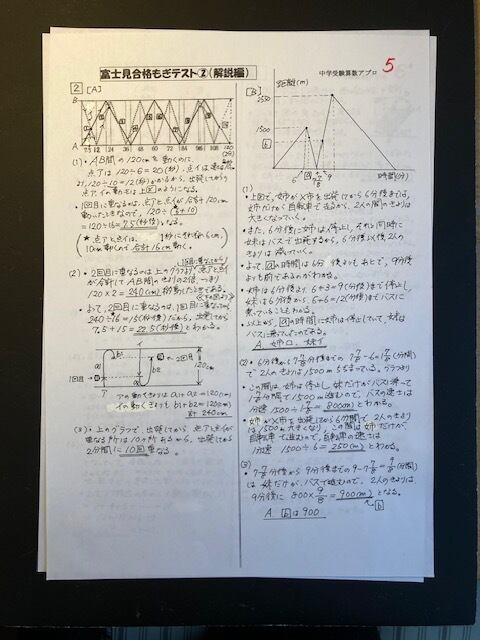 富士見合格もぎテスト②(解説編)
中学受験算数アプロ
5
2 [A]
B
A
7.5 12 24 36 48 60 72 84 96 108 120
(1)・AB間の120cmを動くのに、
点アは120÷6=20(秒)、点イは
120÷10=12(秒)かかるから、出発してからの
点アイの動きは上図のようになる。
・1回目に重なるのは、点アと点イが合計120cm
動いたときなので、120÷(6+10)
=120÷16=7.5(秒後)となる。
(★点アと点イは、1秒にそれぞれ6cm、
10cm動くので、合計16cm動く。
(2)・2回目に重なるのは上のグラフより、点アと点イ
が合計してAB間のきょりの2倍、つまり
120×2=240(cm)移動したときである。
・よって、2回目に重なるのは、1回目に重なってから
240÷16=15(秒後)だから、出発してから
7.5+15=22.5(秒後)とわかる。
イ
a1 b1 a2 b2
1回目→
←2回目
120cm
ア
アの動くきょりはa1+a2=120cm
イの動くきょりもb1+b2=120cm
計240cm
(3)・上のグラフで、出発してから点アと点イが
重なる所は10ヶ所あるから、出発してから
2分間に10回重なる。
[B]
距離(m)
2550
1500
b
6 a 7 7/8 9
時間(分)
(1)
・上図で、姉弟がX市を出発してから6分後までは、
姉だけが自転車で走るから、2人の間のきょりは
大きくなっていく。
・また、6分後に姉は停止し、それと同時に
妹はバスで出発するから、6分後以後2人の
きょりは減っていく。
・よって、aの時間は6分後よりもあとで、9分後
よりも前であるのがわかる。
・姉は6分後より、6+3=9(分後)まで停止し、
妹は6分後から、6+6=12(分後)までバスに
乗っていることもわかる。
・以上から、aの時間に姉は停止していて、妹は
バスに乗っていたのである。
A. 姉ロ、妹イ
(2)・6分後から7 7/8分後までの7 7/8-6=1 7/8(分間)
で、2人のきょりは1500mちぢまっている。
・この間は、姉は停止し、妹だけがバスに乗って
1 7/8分間で1500m進むので、バスの速さは
分速1500÷1 7/8=800(m)とわかる。
・姉がX市を出発してから6分間で、2人のきょり
は1500m大きくなり、この間は姉だけが、
自転車で進むので、自転車の速さは
分速1500÷6=250(m)とわかる。
(3)
・7 7/8分後から9分後までの9-7 7/8=9/8(分間)
は妹だけが、バスで進むので、2人のきょりは
9分後に800×9/8=900(m)となる。
b
A. bは900